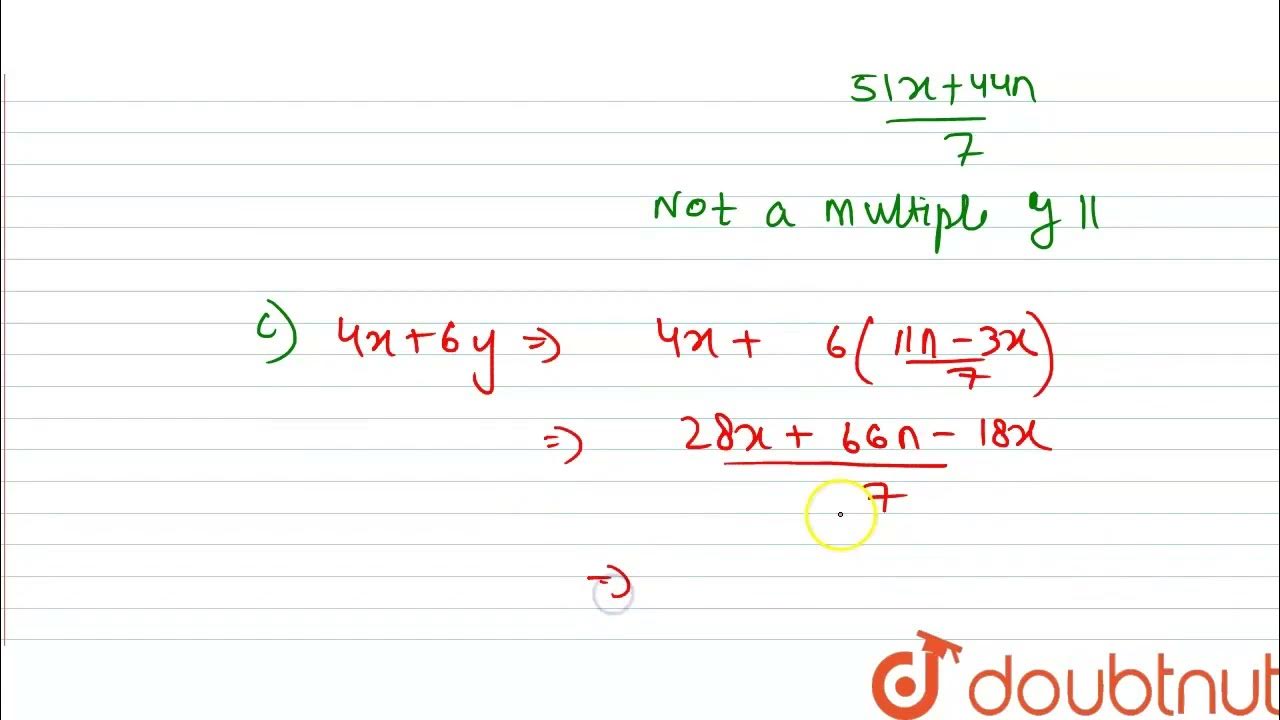 51x+44n
7
Not a multiple of 11
c) 4x+6y ⇒ 4x + 6(11n-3x
7)
⇒ 28x + 66n - 18x
7
⇒
doubtnut